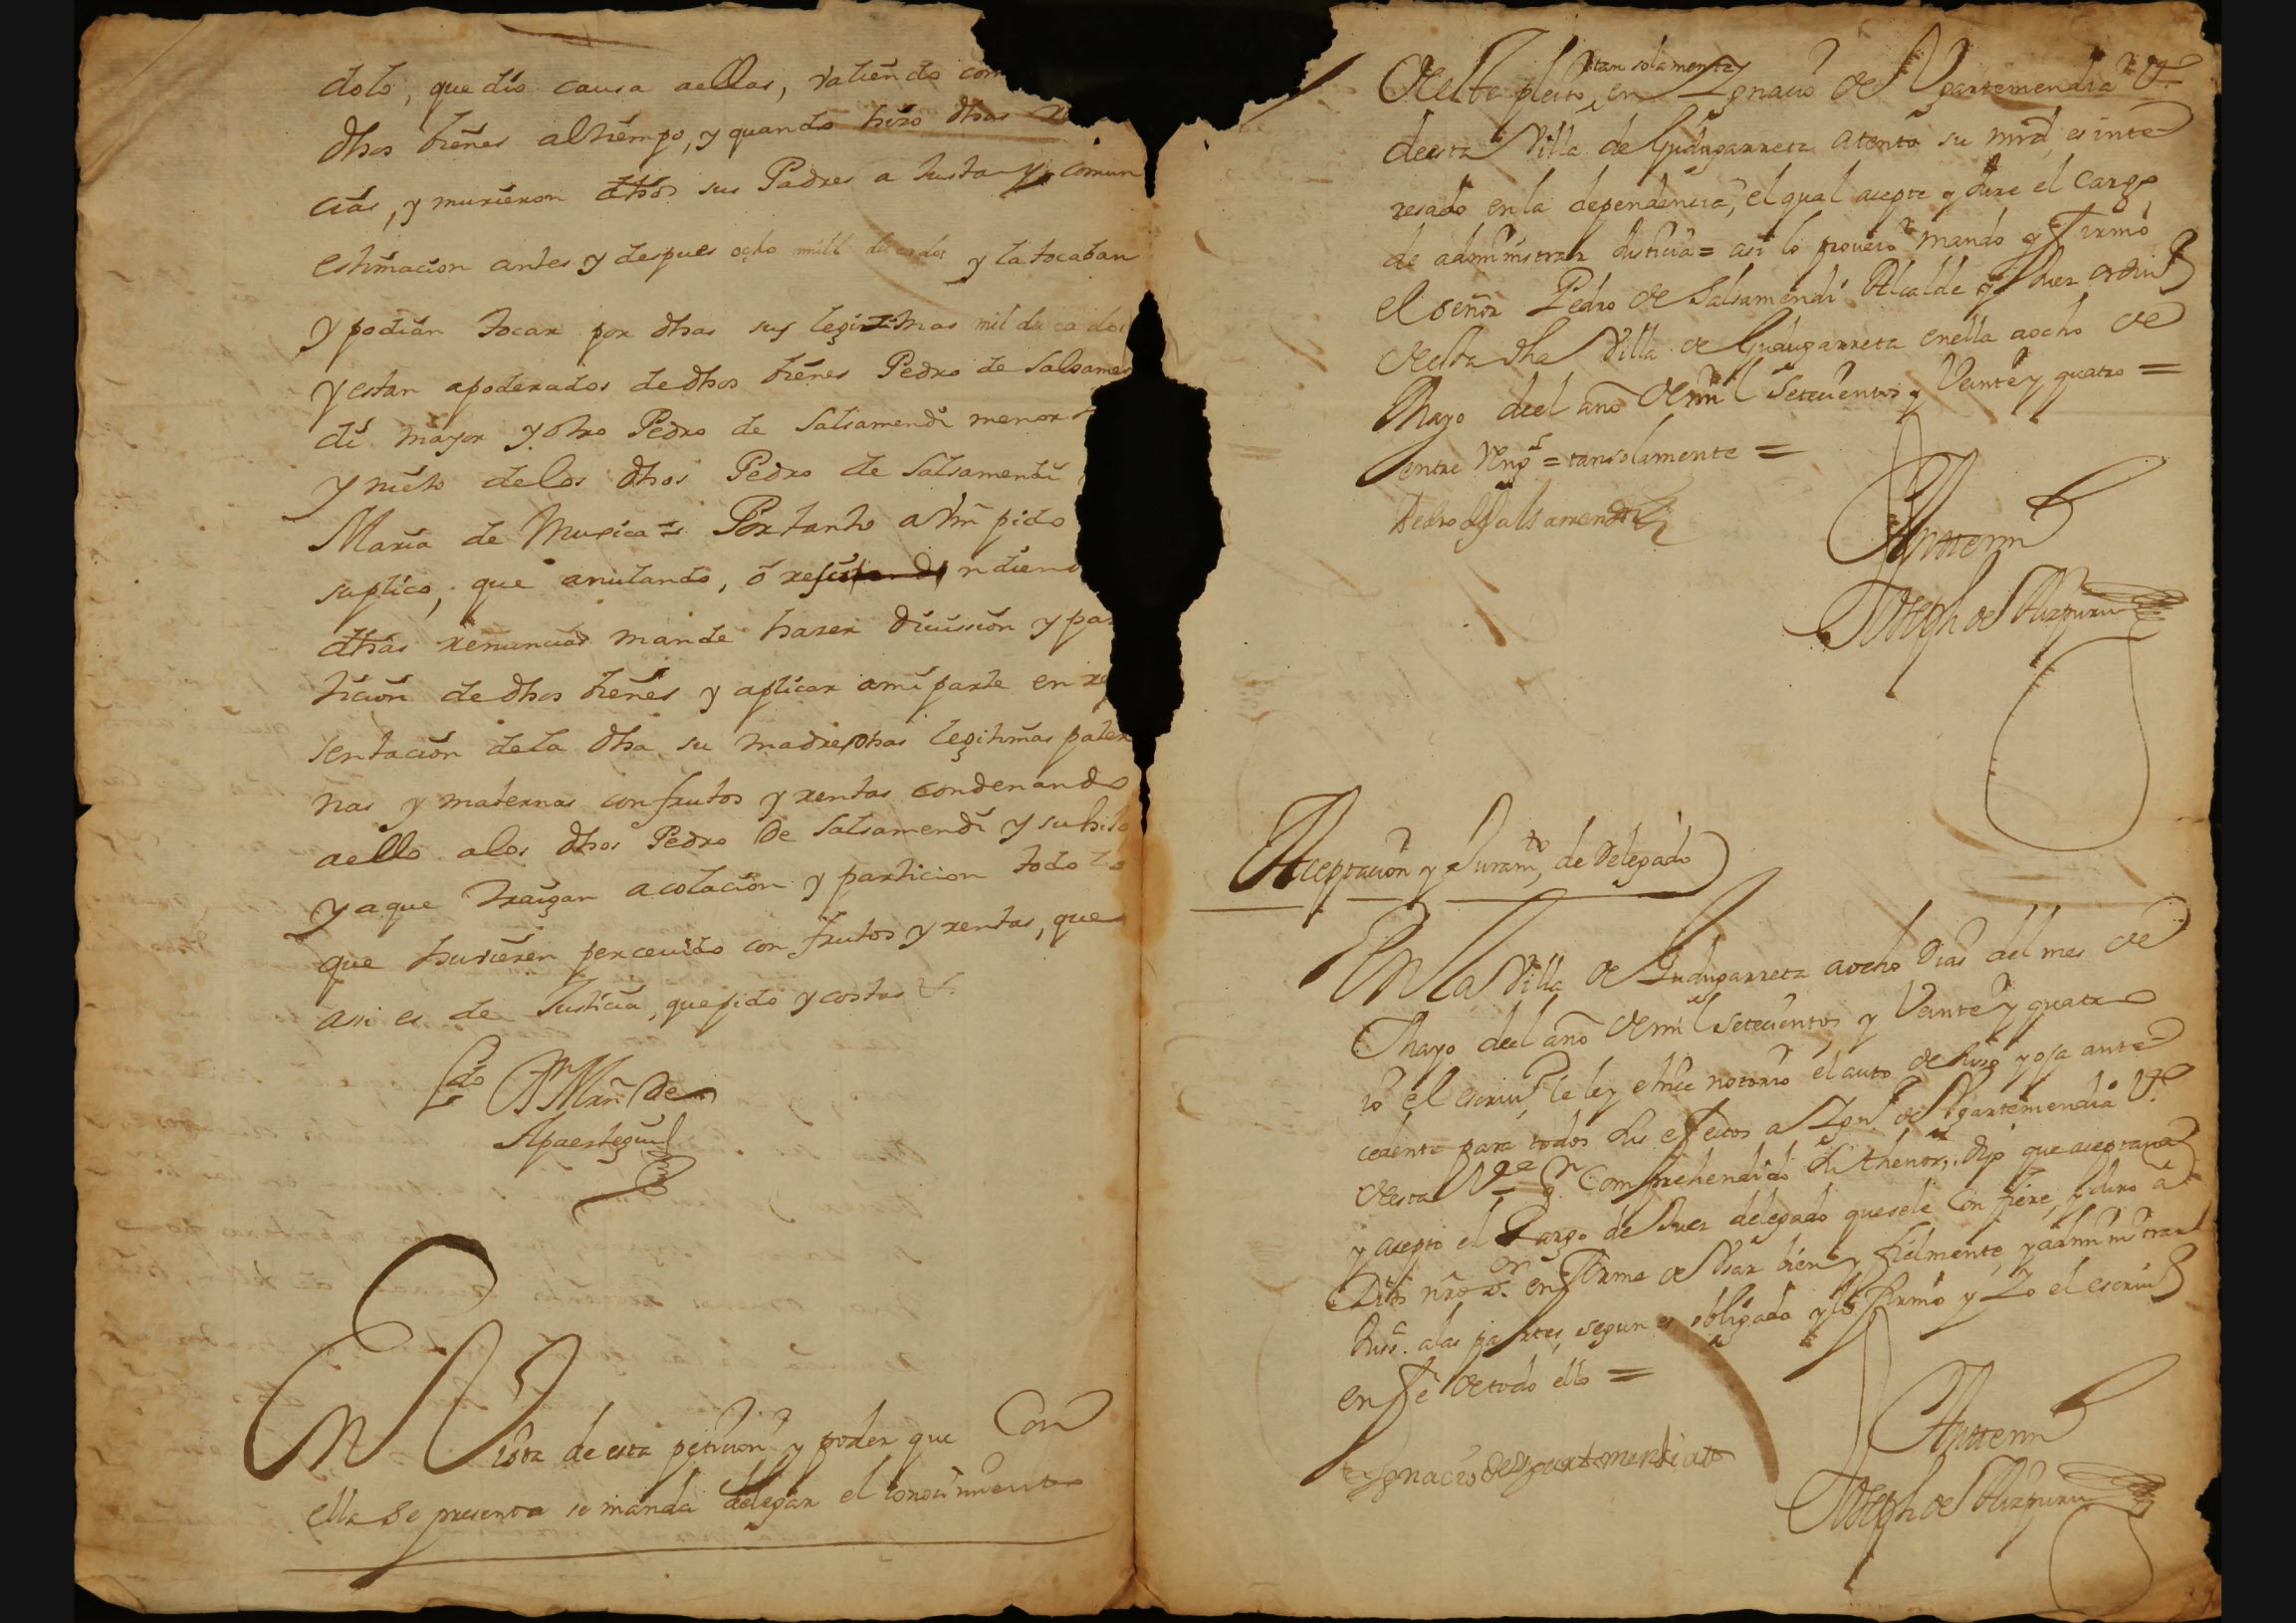 dolo, que dio causa aellas, valiendo com
dhos bienes altiempo, y quando hizo dhas
cias, y murieron dhos sus Padres a Justa y comun
estimacion antes y despues ocho mill ducados y la tocaban
y podian tocar por dhas sus legitimas mil ducados
y estan apoderados dedhos bienes Pedro de Salsamen
di mayor y otro Pedro de Salsamendi menor
y nieto delos dhos Pedro de Salsamendi
Maria de Muxica = Portanto a Vm pido
suplico, que anulando, ó rescindiendo
dhas renuncias mande hazer diuission y par
ticion de dhos bienes y aplicar ami parte en re
sentacion dela dha su madre dhas legitimas pater
nas y maternas con frutos y rentas condenando
aello alos dhos Pedro de Salsamendi y su hijo
y aque traigan acolacion y particion todo lo
que huvieren perceuido con frutos y rentas, que
assi es de Justicia, que pido y costas &.
Ldo Dn Mrñ de
Apaestegui
En Vista de esta peticion y poder que Con
ella se presenta se manda delegar el conocimiento
deste pleito, tan solamente en Ignacio de Ugartemendia Vº
desta Villa de Gudugarreta atento su mrd, es inte
resado en la dependencia, el qual acepte y Jure el Cargo
de administrar Justicia = asi lo proueio mando y Firmó
el señor Pedro de Salsamendi Alcalde y Juez ordinº
desta dha Villa de Gudugarreta en ella a ocho de
Mayo deel año de mil Setecientos y Veinte y quatro =
entre Rengs = tansolamente =
Pedro de Salsamendi
Antemi
Joseph de Aizpuru
Aceptacion y Juramto, de Delegado
En la Villa de Gudugarreta a ocho Dias del mes de
Mayo deel año de mil Setecientos y Veinte y quatro
io el escriuº le ley e hice notorio el auto de Suso y oja ante
cedente para todos sus efectos a Ignº de Ugartemendia Vº
desta Vª qn Comprehendido su thenor, dijo que aceptaua
y acepto el Cargo de Juez delegado quesele Confiere, y Juro á
Dios nro sr. en forma de Usar bien y fielmente, y administrar
Juss. alas partes, segun es obligado y lo firmó y Io el escriuº
en fe de todo ello =
Ygnacio de Ugartemendia
Antemi
Joseph de Aizpuru